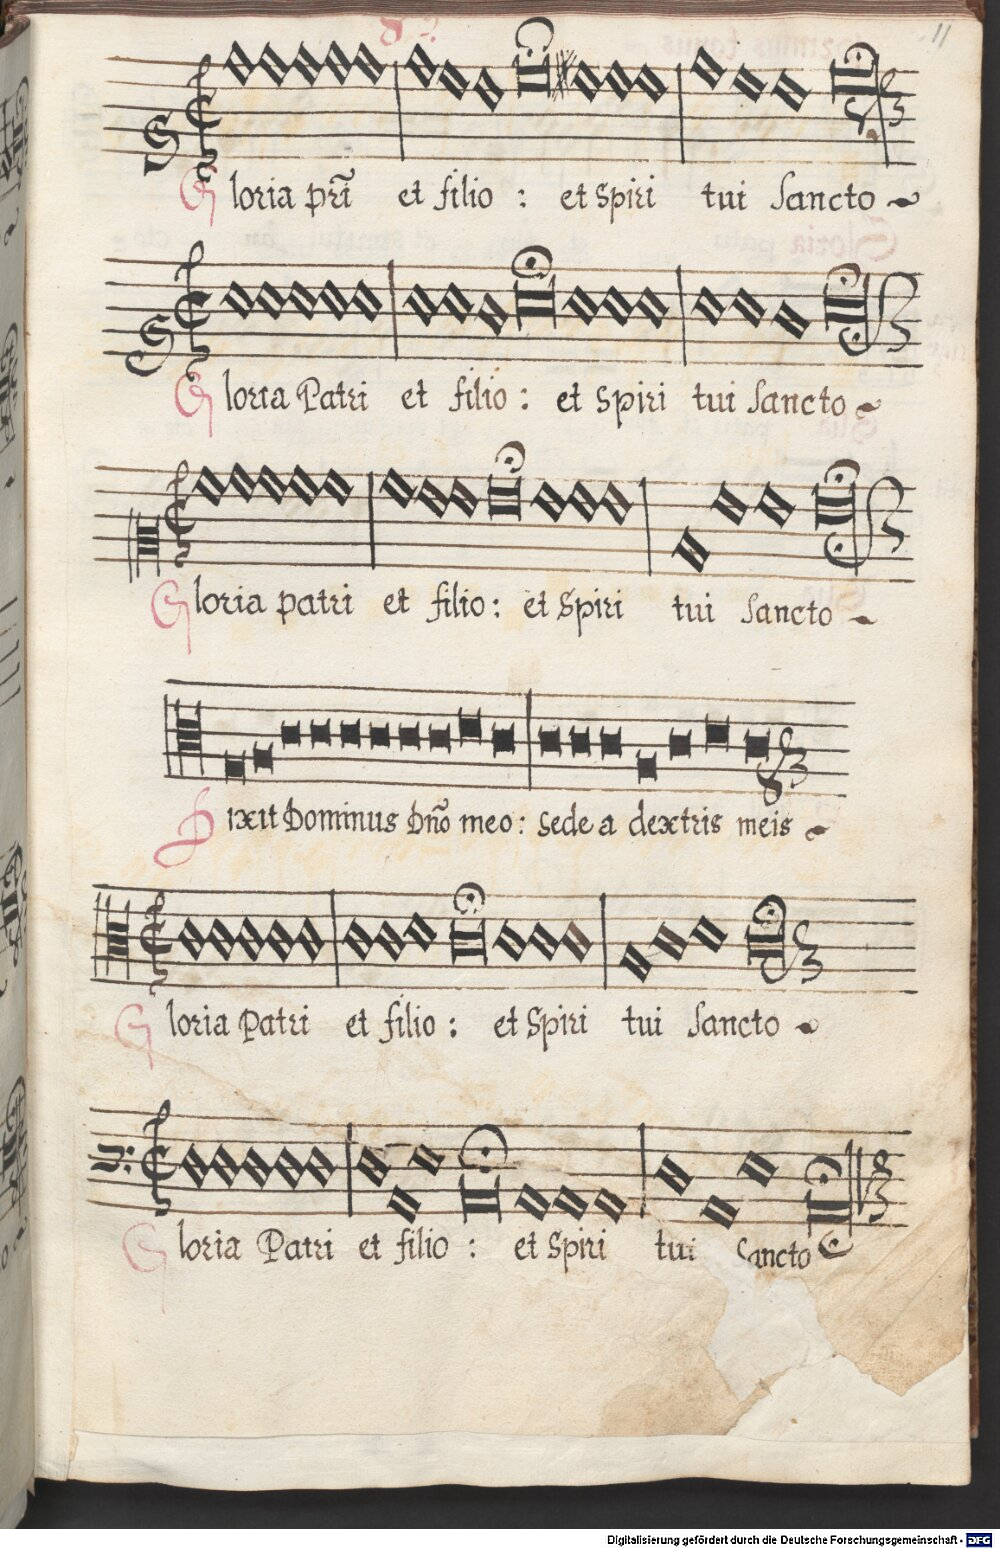 8.
11
Gloria pr̃i et filio : et Spiri tui Sancto
Gloria Patri et filio : et Spiri tui Sancto
Gloria patri et filio : et Spiri tui Sancto
Dixit Dominus Dño meo : Sede a dextris meis
Gloria Patri et filio : et Spiri tui Sancto
Gloria Patri et filio : et Spiri tui Sancto
Digitalisierung gefördert durch die Deutsche Forschungsgemeinschaft - DFG